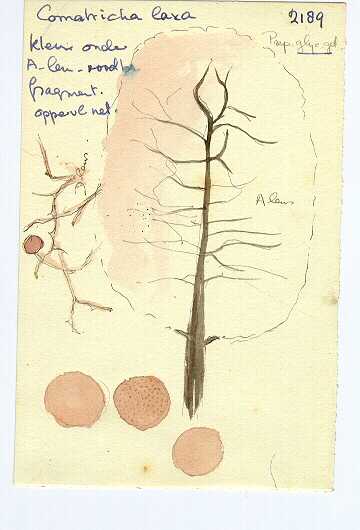 Comatricha laxa
2189
Prep. glyc. gel.
kleur onder
A-lens - rood
fragment.
oppervl. net.
A lens